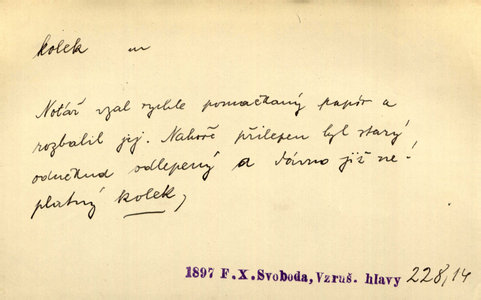 kolek m
Notář vzal rychle pomačkaný papír a
rozbalil jej. Nahoře přilepen byl starý
odněkud odlepený a dávno již ne-
platný kolek,
1897 F. X. Svoboda, Vzruš. hlavy 228,14